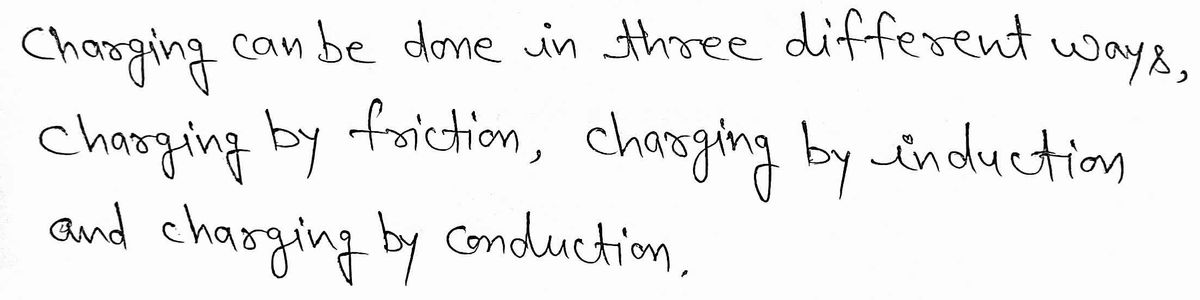 Charging can be done in three different ways,
charging by friction, charging by induction
and charging by conduction.